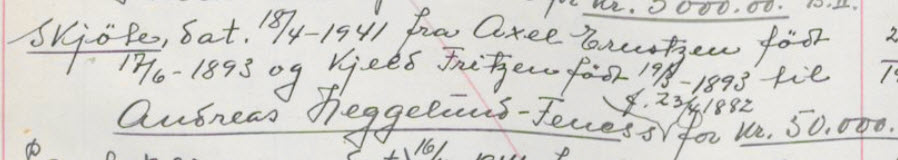 for kr. 5 000.00. 15.II.
Skjöte, dat. 18/4-1941 fra Axel Erntzen född 2
17/6-1893 og Kjeld Fritzen född 19/3-1893 til
f. 23/4 1882
Andreas Heggelund-Feness for kr. 50.000.
16/